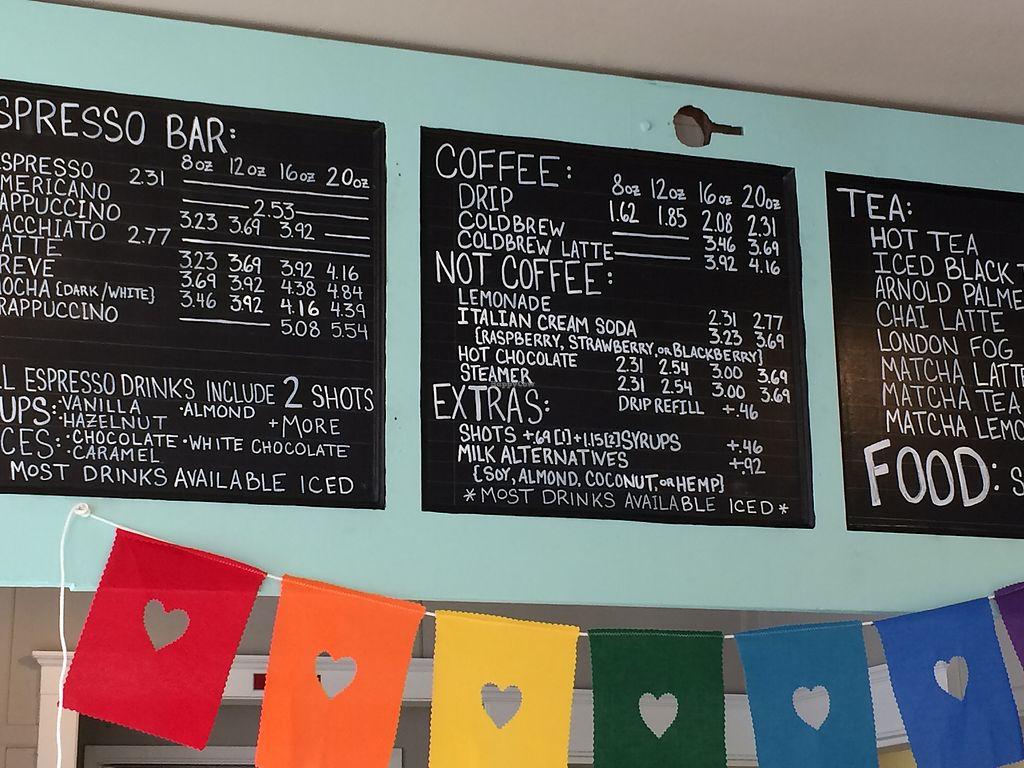 SPRESSO BAR:
8oz 12oz 16oz 20oz
SPRESSO 2.31
MERICANO 2.53
APPUCCINO 3.23 3.69 3.92
ACCHIATO 2.77
ATTE 3.23 3.69 3.92 4.16
REVE 3.69 3.92 4.38 4.84
OCHA [DARK/WHITE] 3.46 3.92 4.16 4.39
RAPPUCCINO 5.08 5.54
L ESPRESSO DRINKS INCLUDE 2 SHOTS
UPS: ·VANILLA ·ALMOND
·HAZELNUT +MORE
CES: ·CHOCOLATE ·WHITE CHOCOLATE
·CARAMEL
MOST DRINKS AVAILABLE ICED
COFFEE: 8oz 12oz 16oz 20oz
DRIP 1.62 1.85 2.08 2.31
COLDBREW 3.46 3.69
COLDBREW LATTE 3.92 4.16
NOT COFFEE:
LEMONADE 2.31 2.77
ITALIAN CREAM SODA 3.23 3.69
[RASPBERRY, STRAWBERRY, OR BLACKBERRY]
HOT CHOCOLATE 2.31 2.54 3.00 3.69
STEAMER 2.31 2.54 3.00 3.69
EXTRAS: DRIP REFILL +.46
SHOTS +.69[1] +1.15[2] SYRUPS +.46
MILK ALTERNATIVES +.92
{SOY, ALMOND, COCONUT, OR HEMP}
*MOST DRINKS AVAILABLE ICED*
TEA:
HOT TEA
ICED BLACK T
ARNOLD PALME
CHAI LATTE
LONDON FOG
MATCHA LATTE
MATCHA TEA
MATCHA LEMO
FOOD: S